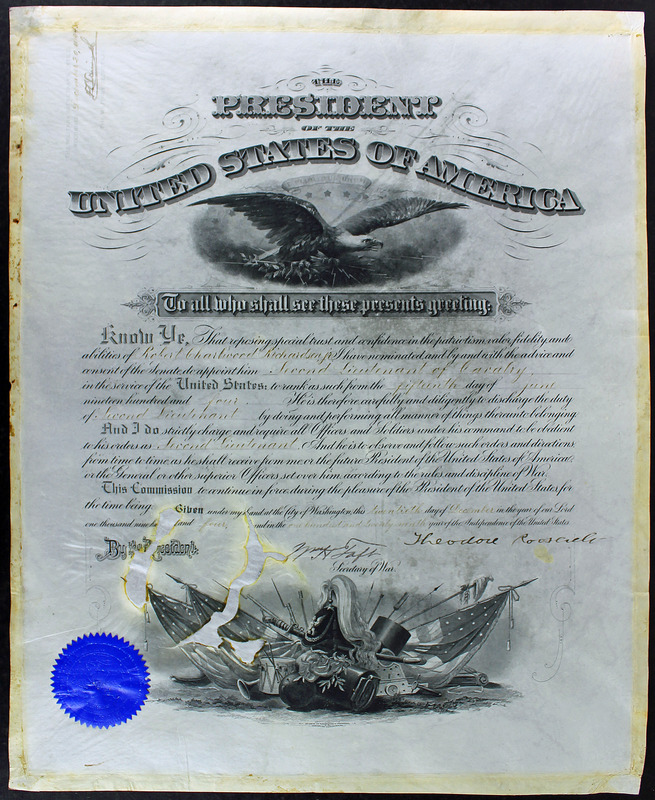 THE
PRESIDENT
OF THE
UNITED STATES OF AMERICA
To all who shall see these presents greeting:
Know Ye, That reposing special trust and confidence in the patriotism, valor, fidelity and
abilities of Robert Charlwood Richardson, jr. I have nominated and by and with the advice and
consent of the Senate do appoint him Second Lieutenant of Cavalry
in the service of the United States: to rank as such from the fifteenth day of June
nineteen hundred and four. He is therefore carefully and diligently to discharge the duty
of Second Lieutenant by doing and performing all manner of things thereunto belonging.
And I do strictly charge and require all Officers and Soldiers under his command to be obedient
to his orders as Second Lieutenant. And he is to observe and follow such orders and directions
from time to time as he shall receive from me or the future President of the United States of America,
or the General or other superior Officers set over him, according to the rules and discipline of War.
This Commission to continue in force during the pleasure of the President of the United States for
the time being. Given under my hand at the City of Washington, this day of December in the year of our Lord
one thousand nine hundred and four, and in the one hundred and twenty-ninth year of the Independence of the United States.
By the President: Wm H Taft Theodore Roosevelt
Secretary of War.